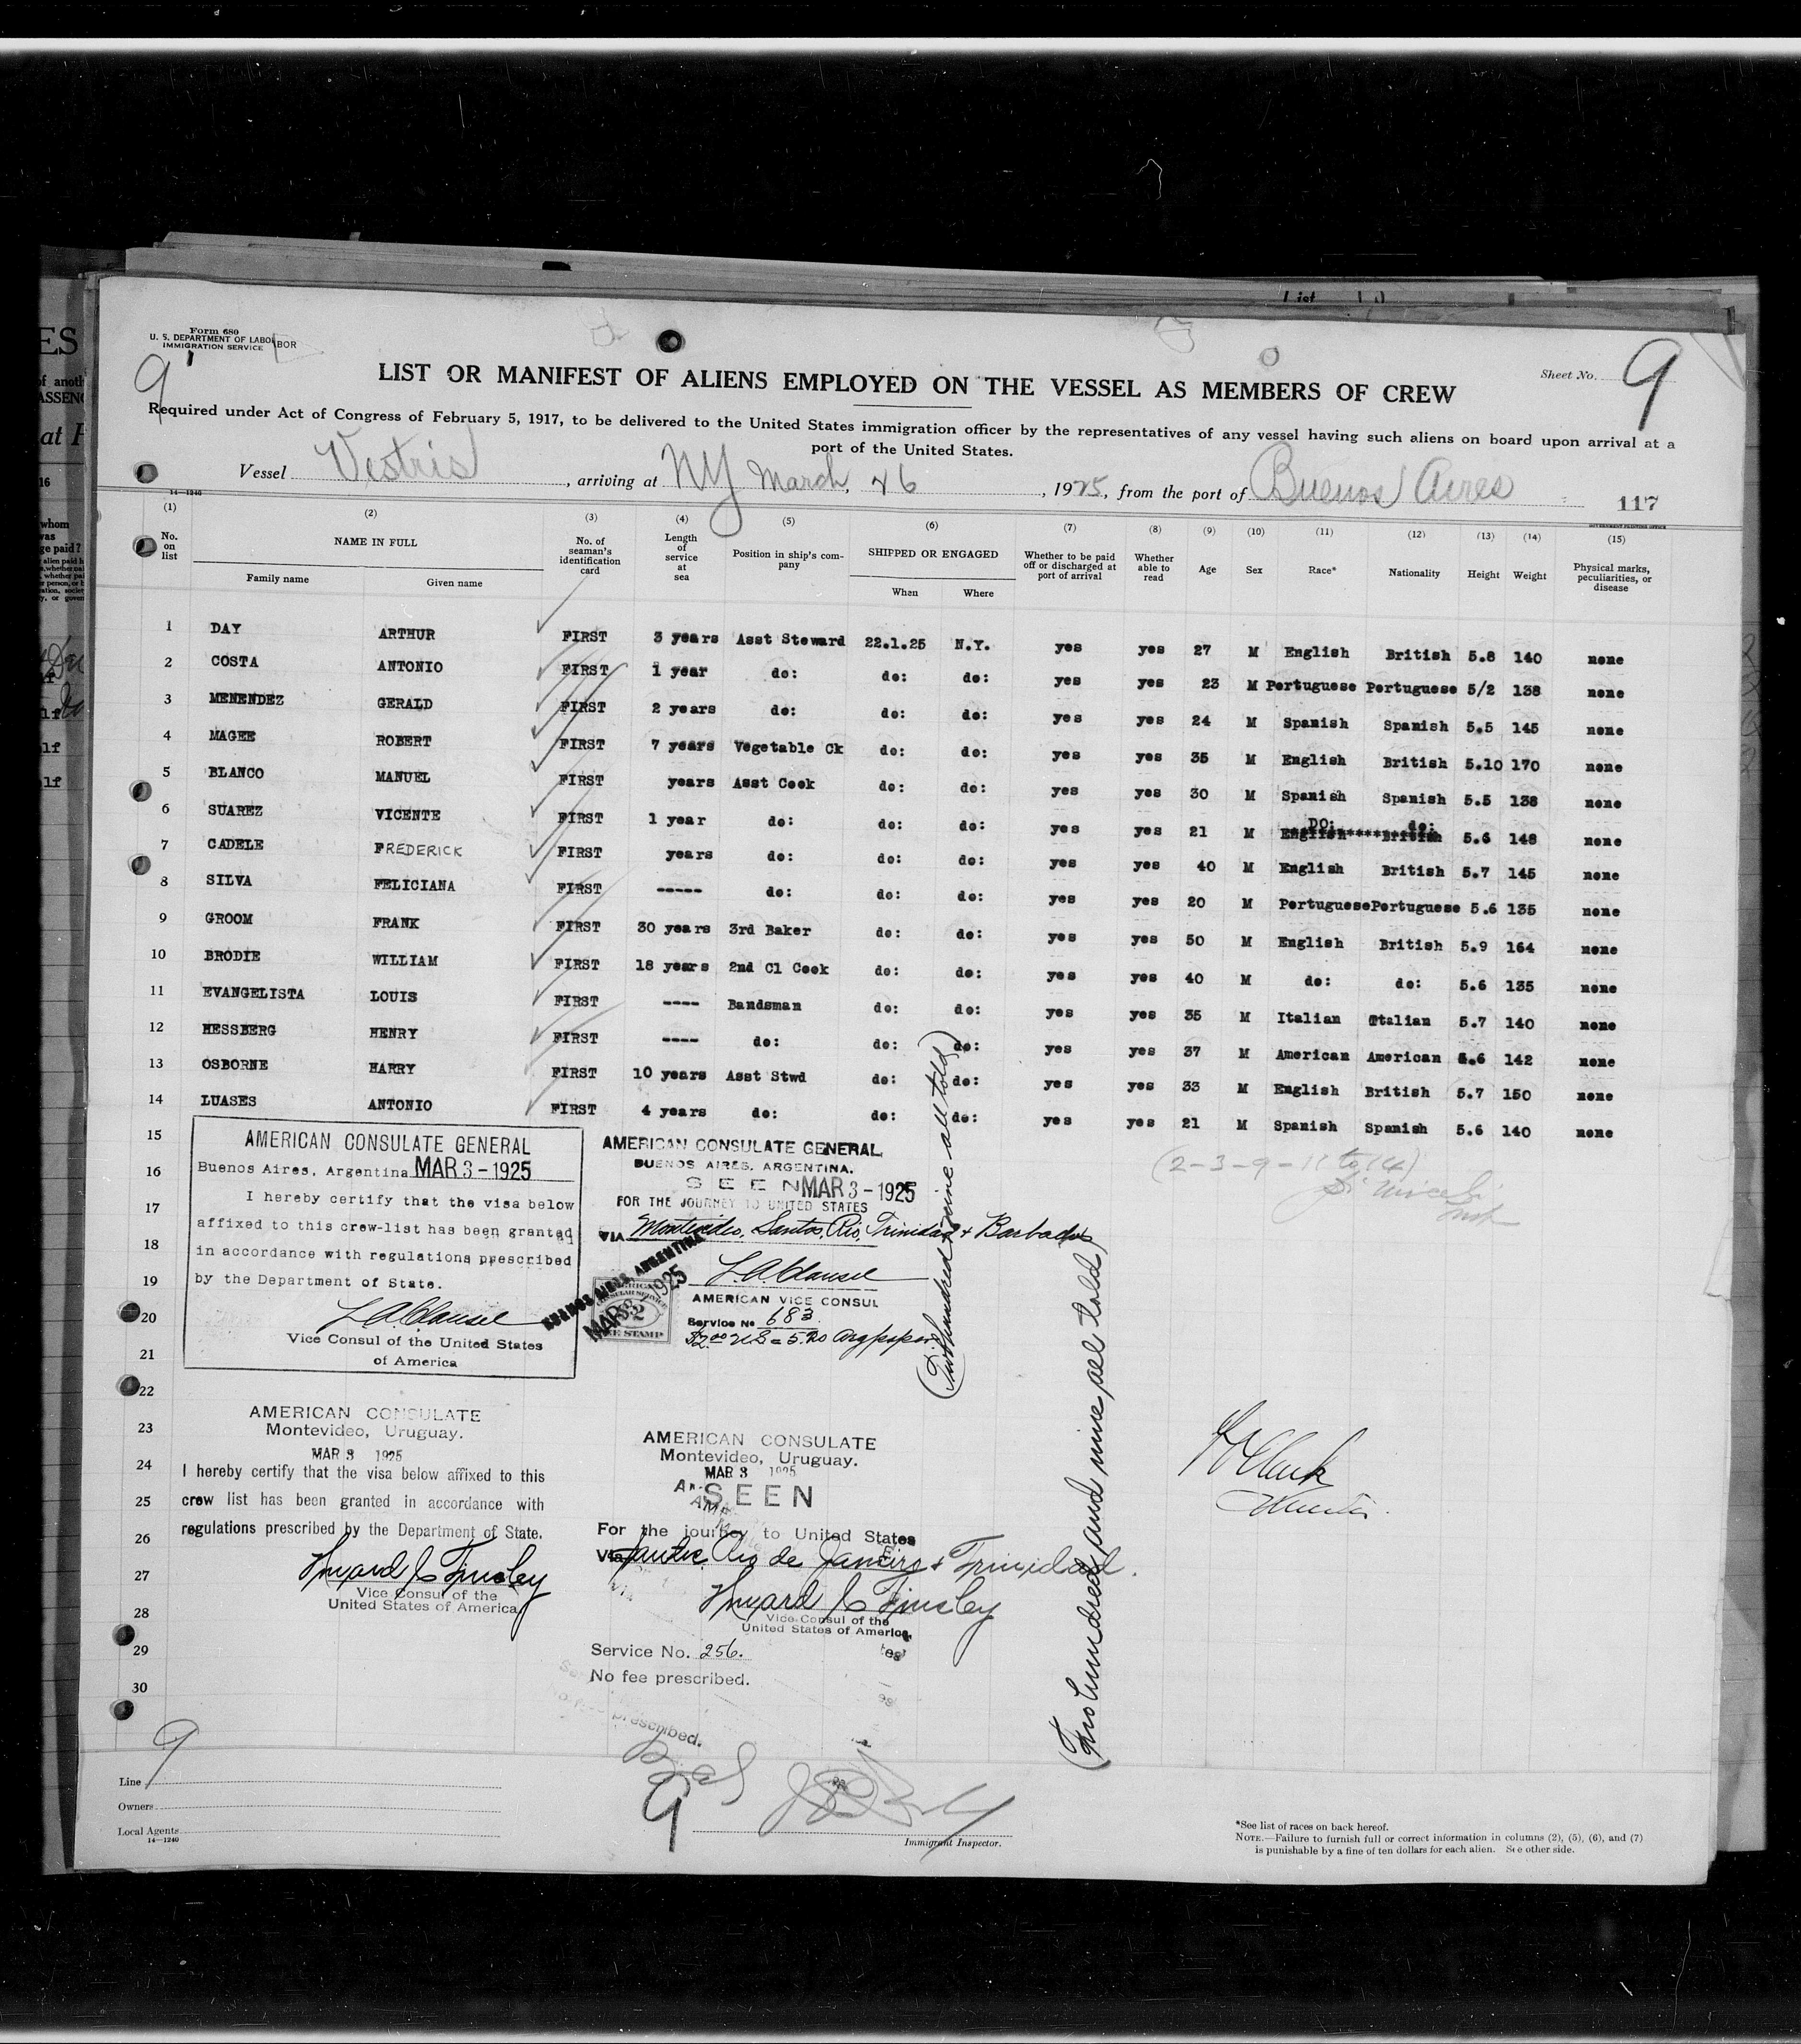 Form 680
U. S. DEPARTMENT OF LABOR
IMMIGRATION SERVICE
9
LIST OR MANIFEST OF ALIENS EMPLOYED ON THE VESSEL AS MEMBERS OF CREW
Sheet No. 9
Required under Act of Congress of February 5, 1917, to be delivered to the United States immigration officer by the representatives of any vessel having such aliens on board upon arrival at a
port of the United States.
Vessel Vestris, arriving at NY March, 26, 1925, from the port of Buenos Aires
14—1240
117
GOVERNMENT PRINTING OFFICE
(1) (2) (3) (4) (5) (6) (7) (8) (9) (10) (11) (12) (13) (14) (15)
No. on list NAME IN FULL Family name Given name No. of seaman's identification card Length of service at sea Position in ship's company SHIPPED OR ENGAGED When Where Whether to be paid off or discharged at port of arrival Whether able to read Age Sex Race* Nationality Height Weight Physical marks, peculiarities, or disease
1 DAY ARTHUR FIRST 3 years Asst Steward 22.1.25 N.Y. yes yes 27 M English British 5.8 140 none
2 COSTA ANTONIO FIRST 1 year do: do: do: yes yes 23 M Portuguese Portuguese 5/2 138 none
3 MENENDEZ GERALD FIRST 2 years do: do: do: yes yes 24 M Spanish Spanish 5.5 145 none
4 MAGEE ROBERT FIRST 7 years Vegetable Ck do: do: yes yes 35 M English British 5.10 170 none
5 BLANCO MANUEL FIRST years Asst Cook do: do: yes yes 30 M Spanish Spanish 5.5 138 none
6 SUAREZ VICENTE FIRST 1 year do: do: do: yes yes 21 M DO: do: 5.6 148 none
7 CADELE FREDERICK FIRST years do: do: do: yes yes 40 M English British 5.7 145 none
8 SILVA FELICIANA FIRST ----- do: do: do: yes yes 20 M Portuguese Portuguese 5.6 135 none
9 GROOM FRANK FIRST 30 years 3rd Baker do: do: yes yes 50 M English British 5.9 164 none
10 BRODIE WILLIAM FIRST 18 years 2nd Cl Cook do: do: yes yes 40 M do: do: 5.6 135 none
11 EVANGELISTA LOUIS FIRST ---- Bandsman do: do: yes yes 35 M Italian Italian 5.7 140 none
12 HESSBERG HENRY FIRST ---- do: do: do: yes yes 37 M American American 5.6 142 none
13 OSBORNE HARRY FIRST 10 years Asst Stwd do: do: yes yes 33 M English British 5.7 150 none
14 LUASES ANTONIO FIRST 4 years do: do: do: yes yes 21 M Spanish Spanish 5.6 140 none
15
16
17
18
19
20
21
22
23
24
25
26
27
28
29
30
AMERICAN CONSULATE GENERAL
Buenos Aires, Argentina MAR 3-1925
I hereby certify that the visa below
affixed to this crew-list has been granted
in accordance with regulations prescribed
by the Department of State.
Vice Consul of the United States
of America
AMERICAN CONSULATE GENERAL
BUENOS AIRES, ARGENTINA.
SEEN MAR 3-1925
FOR THE JOURNEY TO UNITED STATES
VIA Montevideo, Santos, Rio, Trinidad + Barbados
AMERICAN VICE CONSUL
Service No 683
BUENOS AIRES ARGENTINA
MAR 3 1925
(Two hundred & nine all told)
(Two hundred and nine all told)
(2-3-9-11 to 14)
AMERICAN CONSULATE
Montevideo, Uruguay.
MAR 3 1925
I hereby certify that the visa below affixed to this
crew list has been granted in accordance with
regulations prescribed by the Department of State.
Vice Consul of the
United States of America
AMERICAN CONSULATE
Montevideo, Uruguay.
MAR 3 1925
SEEN
For the journey to United States
Via Santos Rio de Janeiro + Trinidad.
Vice Consul of the
United States of America
Service No. 256.
No fee prescribed.
prescribed.
9
9
Line
Owners
Local Agents
14—1240
Immigrant Inspector.
*See list of races on back hereof.
NOTE.—Failure to furnish full or correct information in columns (2), (5), (6), and (7)
is punishable by a fine of ten dollars for each alien. See other side.